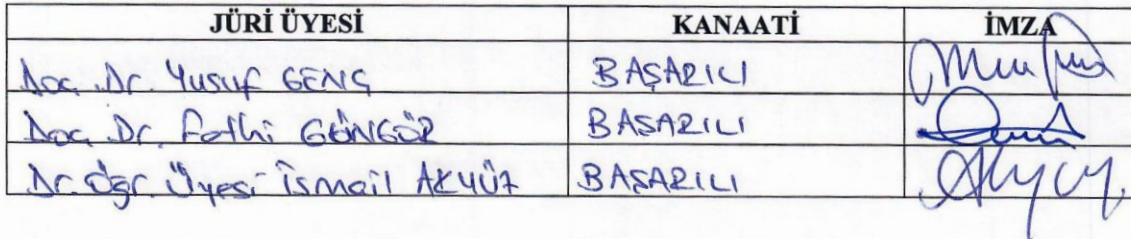 JÜRİ ÜYESİ KANAATİ İMZA
Doç. Dr. Yusuf GENÇ BAŞARILI
Doç. Dr. Fethi GÜNGÖR BAŞARILI
Dr. Öğr. Üyesi İsmail AKYÜZ BAŞARILI